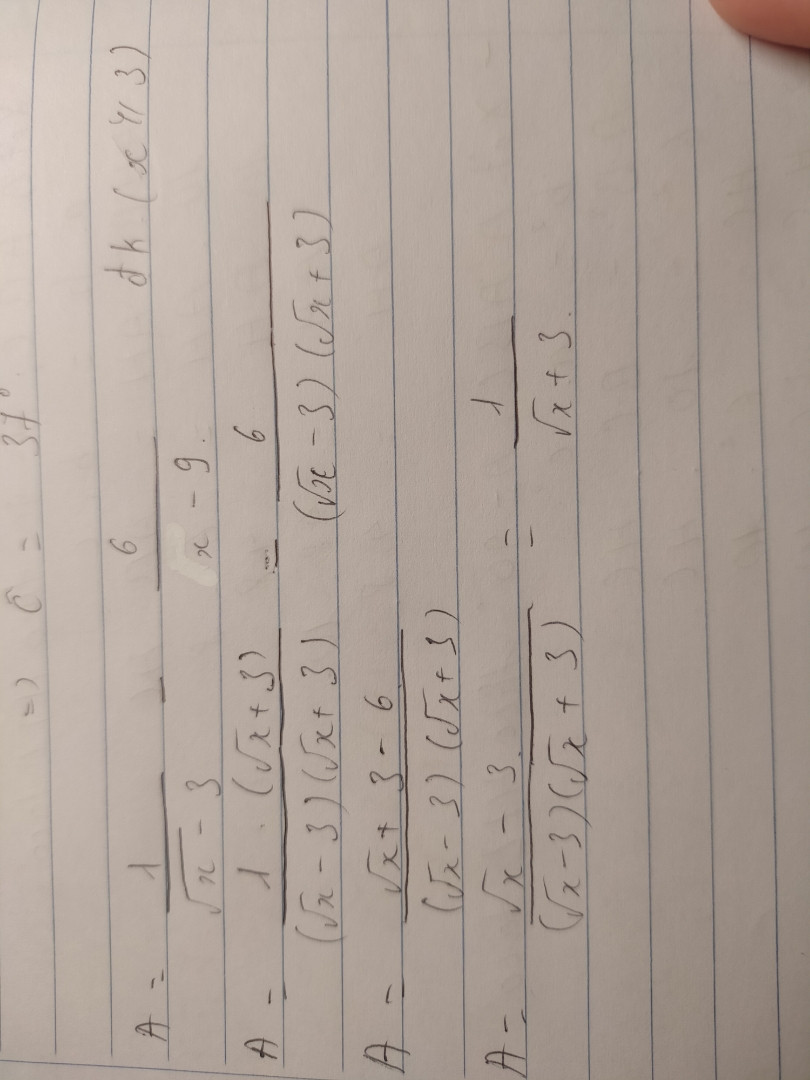 =) Ĉ = 37°
A = 1/(√x - 3) - 6/(x - 9) đk (x ≥ 3)
A = 1 . (√x + 3)/(√x - 3)(√x + 3) - 6/(√x - 3)(√x + 3)
A = √x + 3 - 6/(√x - 3)(√x + 3)
A = √x - 3/(√x - 3)(√x + 3) = 1/√x + 3.